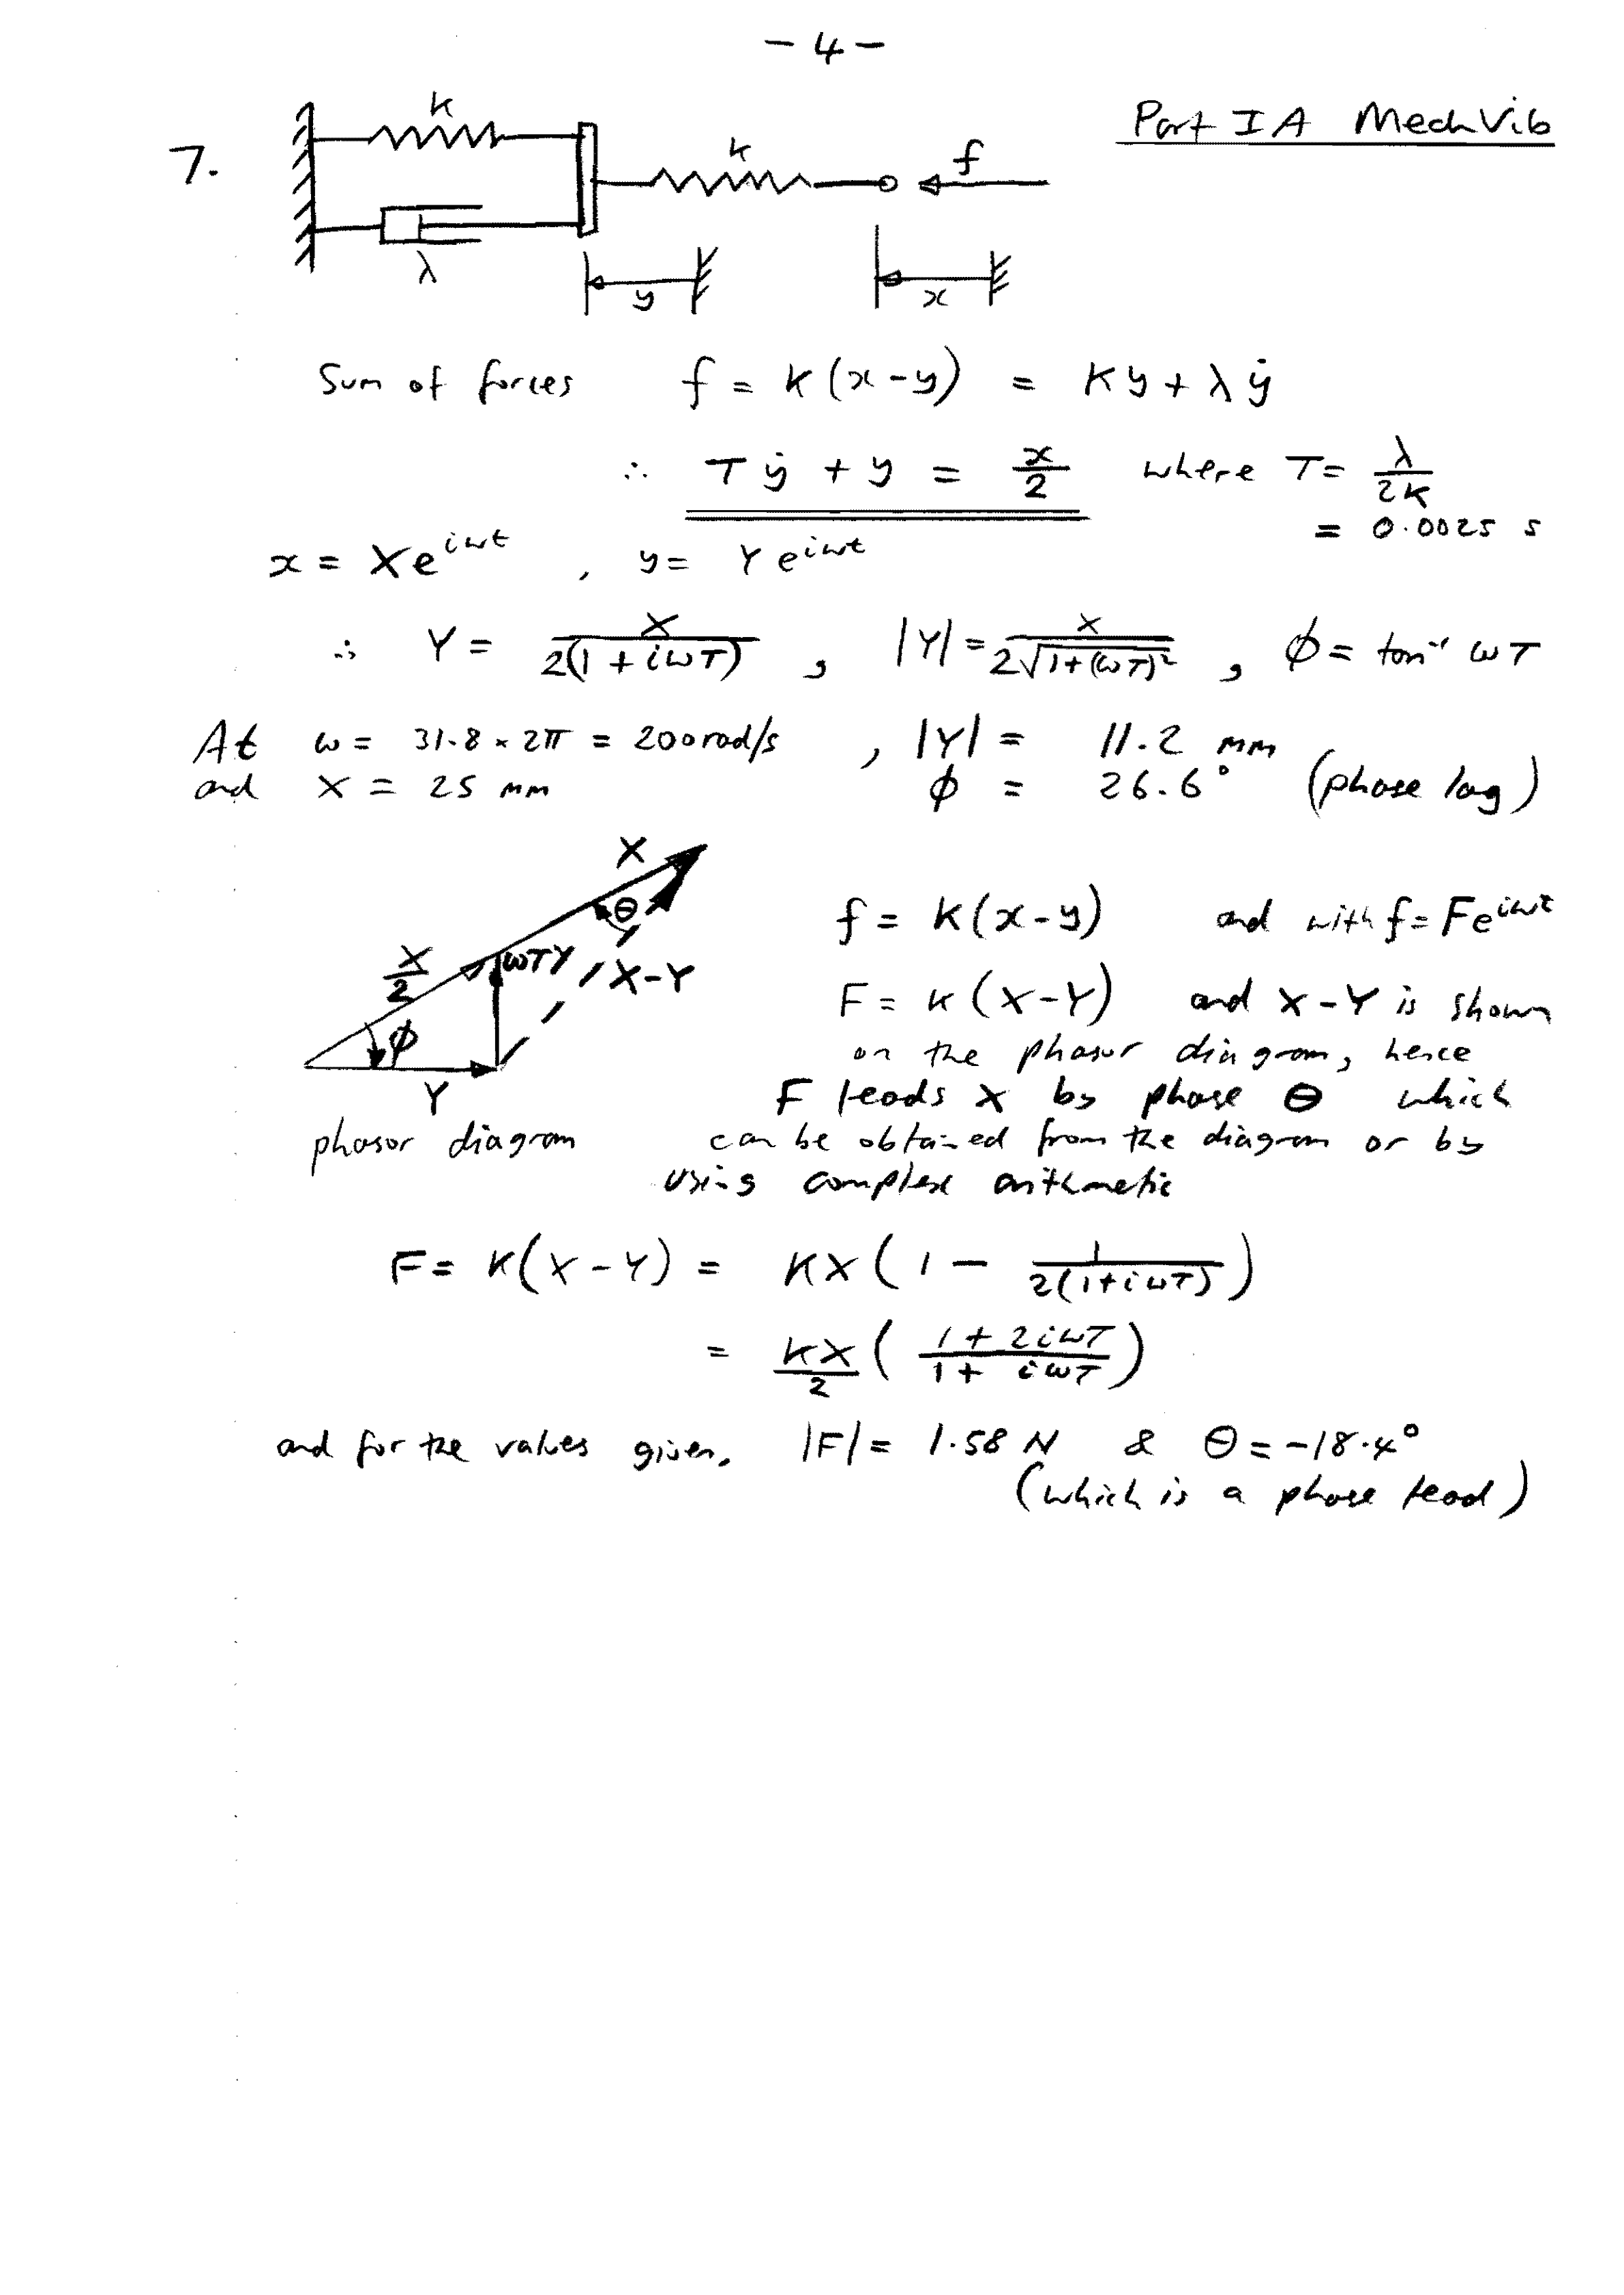 - 4 -
Part IA Mech Vib
7.
k
k
f
λ
y
x
Sum of forces f = k(x-y) = ky + λẏ
∴ Tẏ + y = x/2 where T = λ/2k
= 0.0025 s
x = Xe^{iωt} , y = Ye^{iωt}
∴ Y = X/2(1+iωT) , |Y| = X/2√1+(ωT)² , ϕ = tan⁻¹ ωT
At ω = 31.8 × 2π = 200 rad/s , |Y| = 11.2 mm
and X = 25 mm ϕ = 26.6° (phase lag)
X
θ
X/2
ωTY
X-Y
ϕ
Y
phasor diagram
f = k(x-y) and with f = Fe^{iωt}
F = k(X-Y) and X-Y is shown
on the phasor diagram, hence
F leads X by phase θ which
can be obtained from the diagram or by
using complex arithmetic
F = k(X-Y) = kX(1 - 1/2(1+iωT))
= kX/2 (1+2iωT/1+iωT)
and for the values given, |F| = 1.58 N & θ = -18.4°
(which is a phase lead)